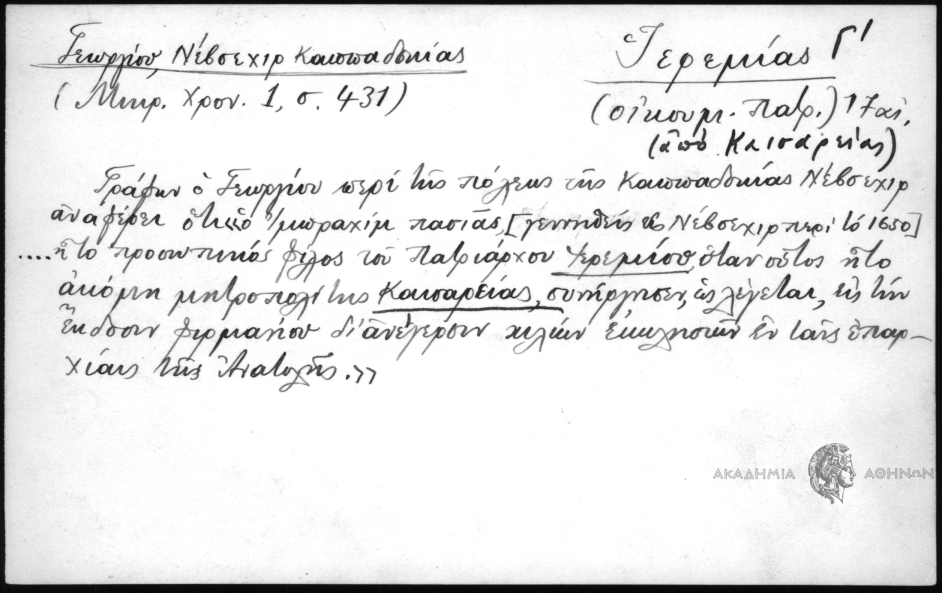 Γεωργίου, Νέβσεχιρ Καππαδοκίας
(Μικρ. Χρον. 1, σ. 431)
Ἱερεμίας Γ'
(οἰκουμ. Πατρ.) 17αι.
(ἀπό Καισαρείας)
Γράφων ὁ Γεωργίου περί τῆς πόλεως τῆς Καππαδοκίας Νέβσεχιρ
ἀναφέρει ὅτι «ὁ Ἰμπραχίμ πασιᾶς [γεννηθείς ἐν Νέβσεχιρ περί τό 1650]
.... ἦτο προσωπικός φίλος τοῦ Πατριάρχου Ἱερεμίου, ὅταν οὗτος ἦτο
ἀκόμη μητροπολίτης Καισαρείας, συνήργησεν, ὡς λέγεται, εἰς τήν
ἔκδοσιν φιρμανίου δι' ἀνέγερσιν χιλίων ἐκκλησιῶν ἐν ταῖς ἐπαρ-
χίαις τῆς Ἀνατολῆς.»
ΑΚΑΔΗΜΙΑ ΑΘΗΝΩΝ